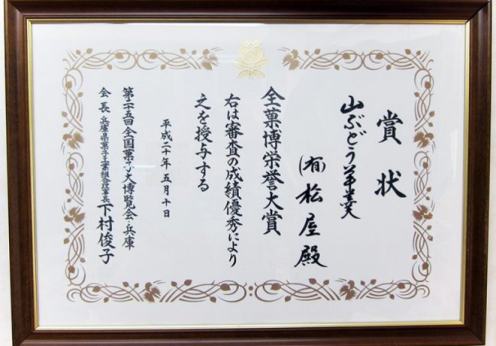 賞状
山ぶどう羊羹
(有)松屋殿
全菓博栄誉大賞
右は審査の成績優秀により
之を授与する
平成二十年五月十日
第二十五回全国菓子大博覧会・兵庫
会長 兵庫県菓子工業組合理事長 下村俊子